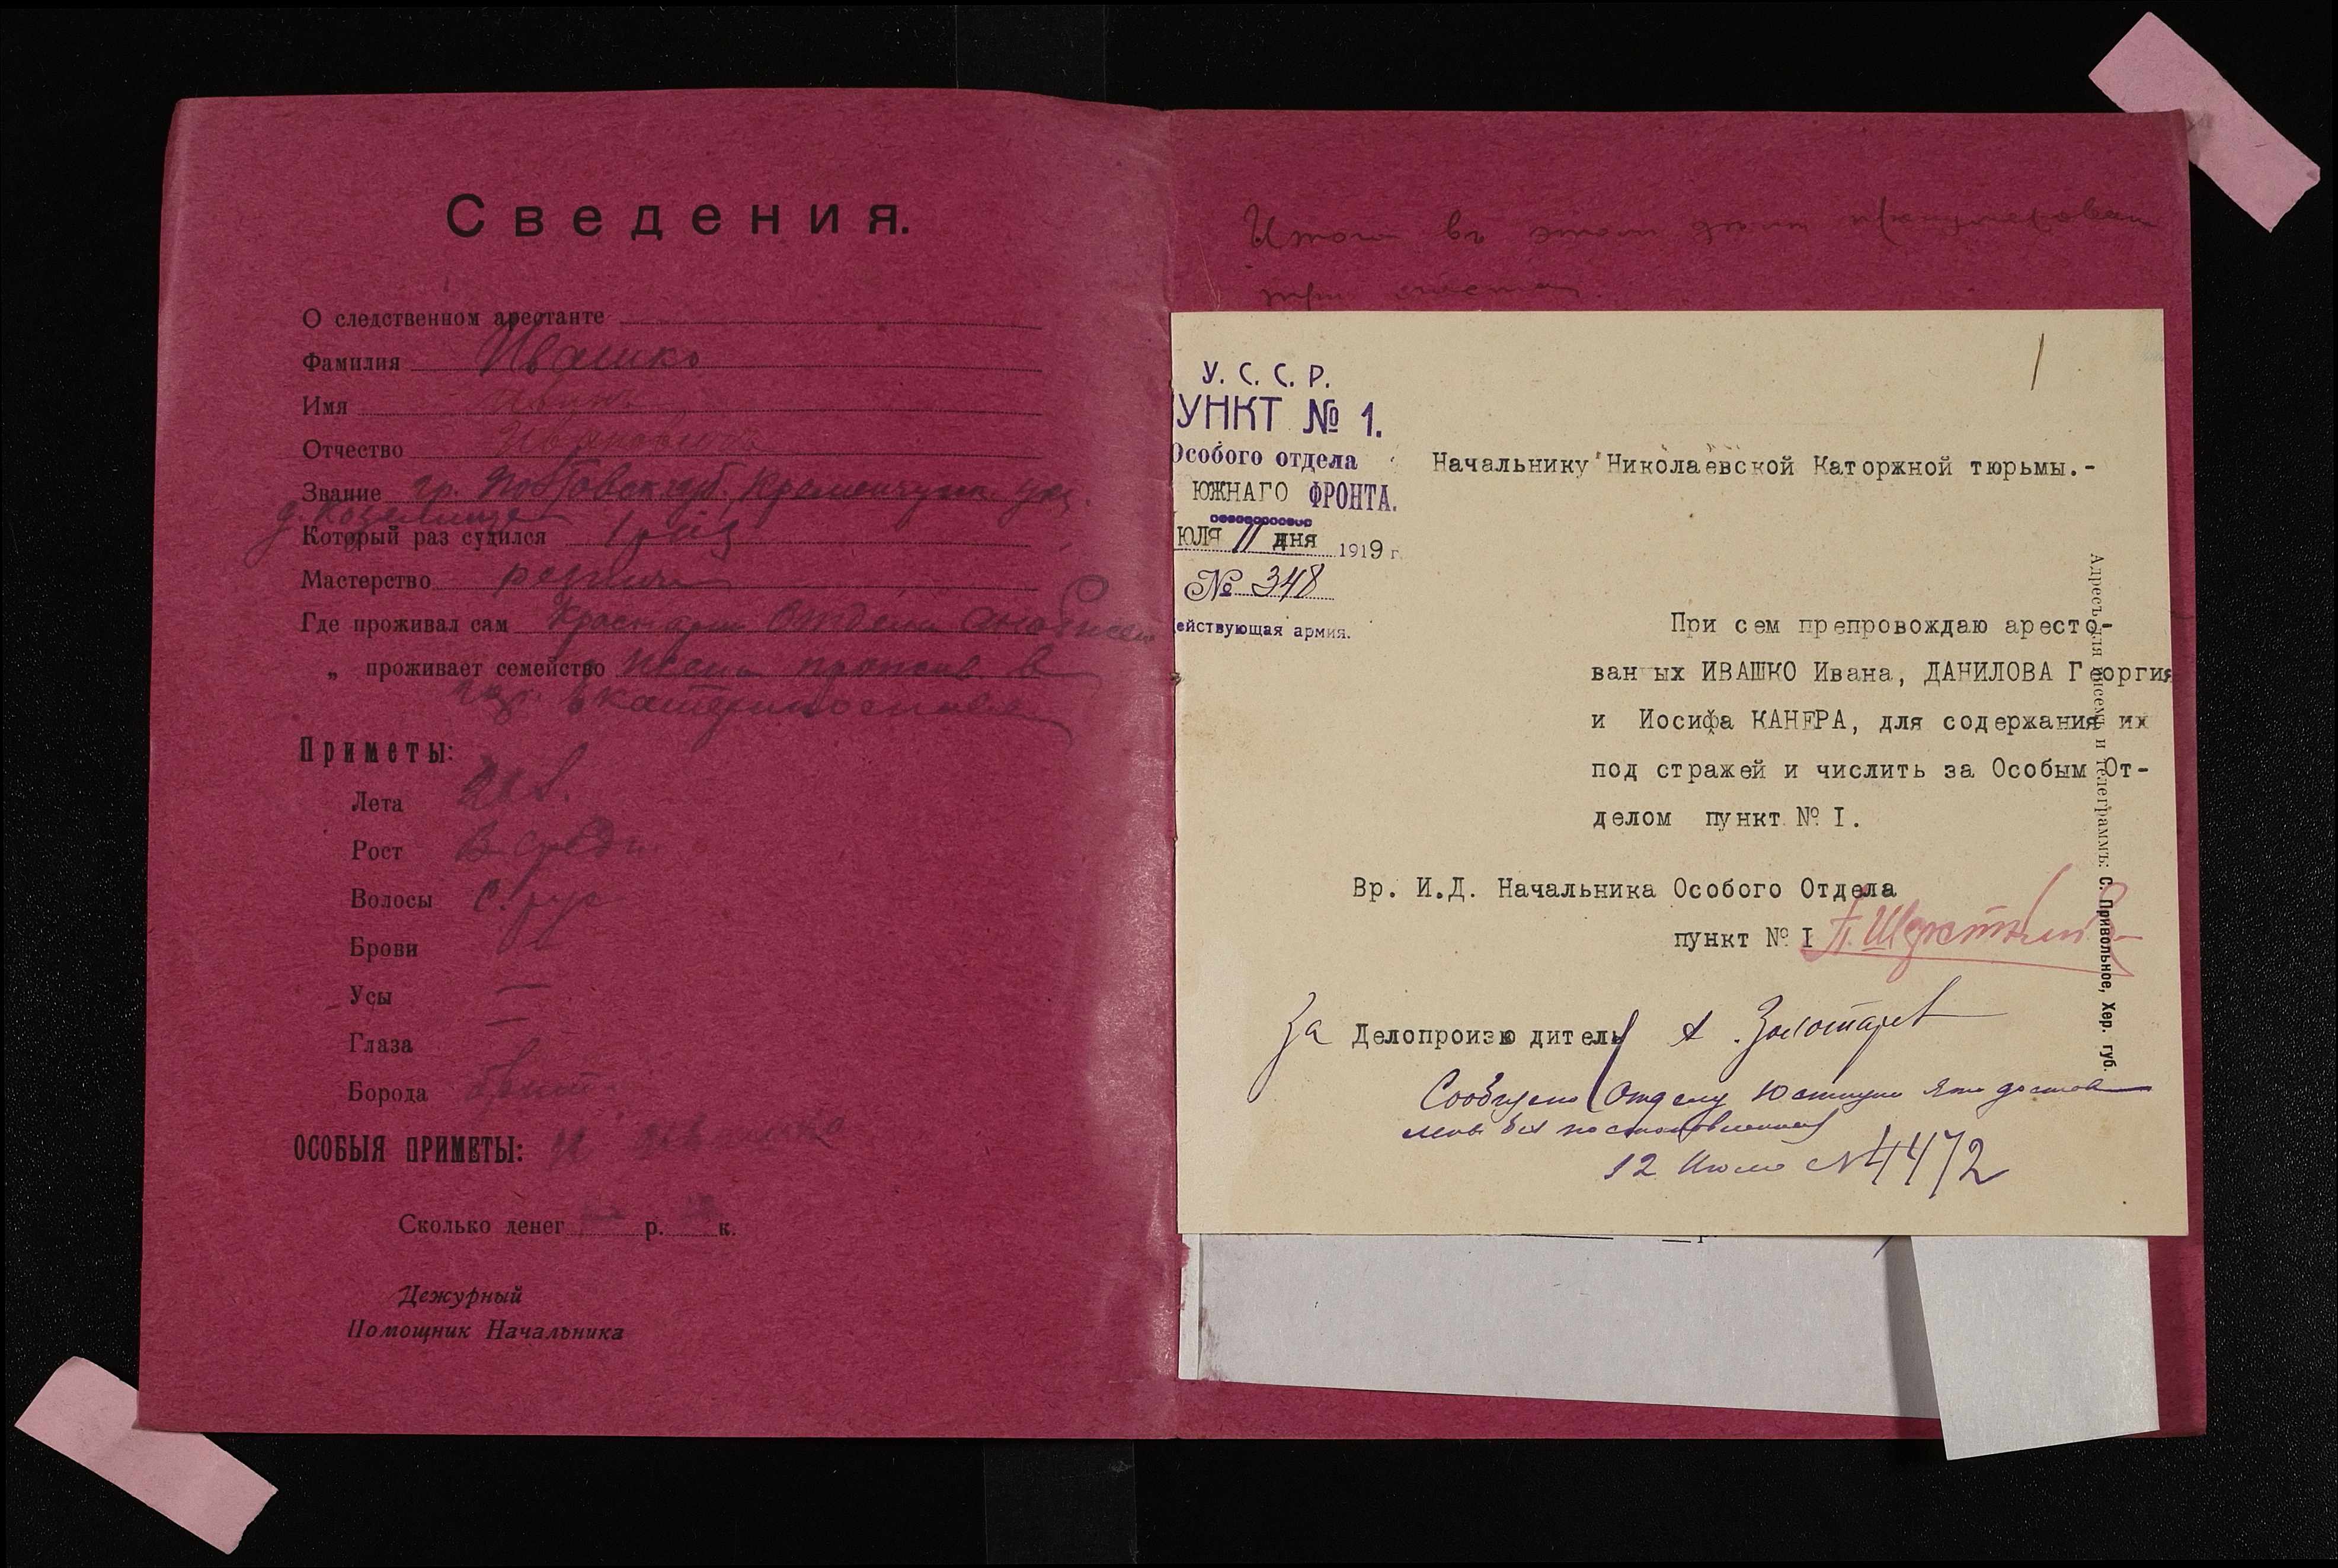 Сведения.
О следственном арестанте
Фамилия Ивашко
Имя Иван
Отчество Иванович
Звание гр. Полтавск губ, Кременчугск. уез.
д. Козельще
Который раз судился 1 раз
Мастерство
Где проживал сам Красноарм Отдела
„ проживает семейство жена прожив в
гор. Екатеринославе
Приметы:
Лета
Рост В. средн.
Волосы с. рус
Брови
Усы —
Глаза —
Борода
ОСОБЫЯ ПРИМЕТЫ: И Ивашко
Сколько денег р. к.
Дежурный
Помощник Начальника
Итого въ этом деле пронумерован
три листа
1
У. С. С. Р.
УНКТ № 1.
Особого отдела
ЮЖНАГО ФРОНТА.
ЮЛЯ 11 дня 1919 г.
№ 348
ействующая армия.
Начальнику Николаевской Каторжной тюрьмы.-
При сем препровождаю аресто-
ван ых ИВАШКО Ивана, ДАНИЛОВА Г оргия
и Иосифа КАНЕРА, для содержания их
под стражей и числить за Особым От-
делом пункт № I.
Вр. И.Д. Начальника Особого Отдела
пункт № I
За Делопроизводитель А. Золотарев
Сообщено Отделу Юстиции что достав
лены без постановления
12 Июля № 4472
Адресъ для писемъ и телеграммъ: С. Привольное, Хер. губ.